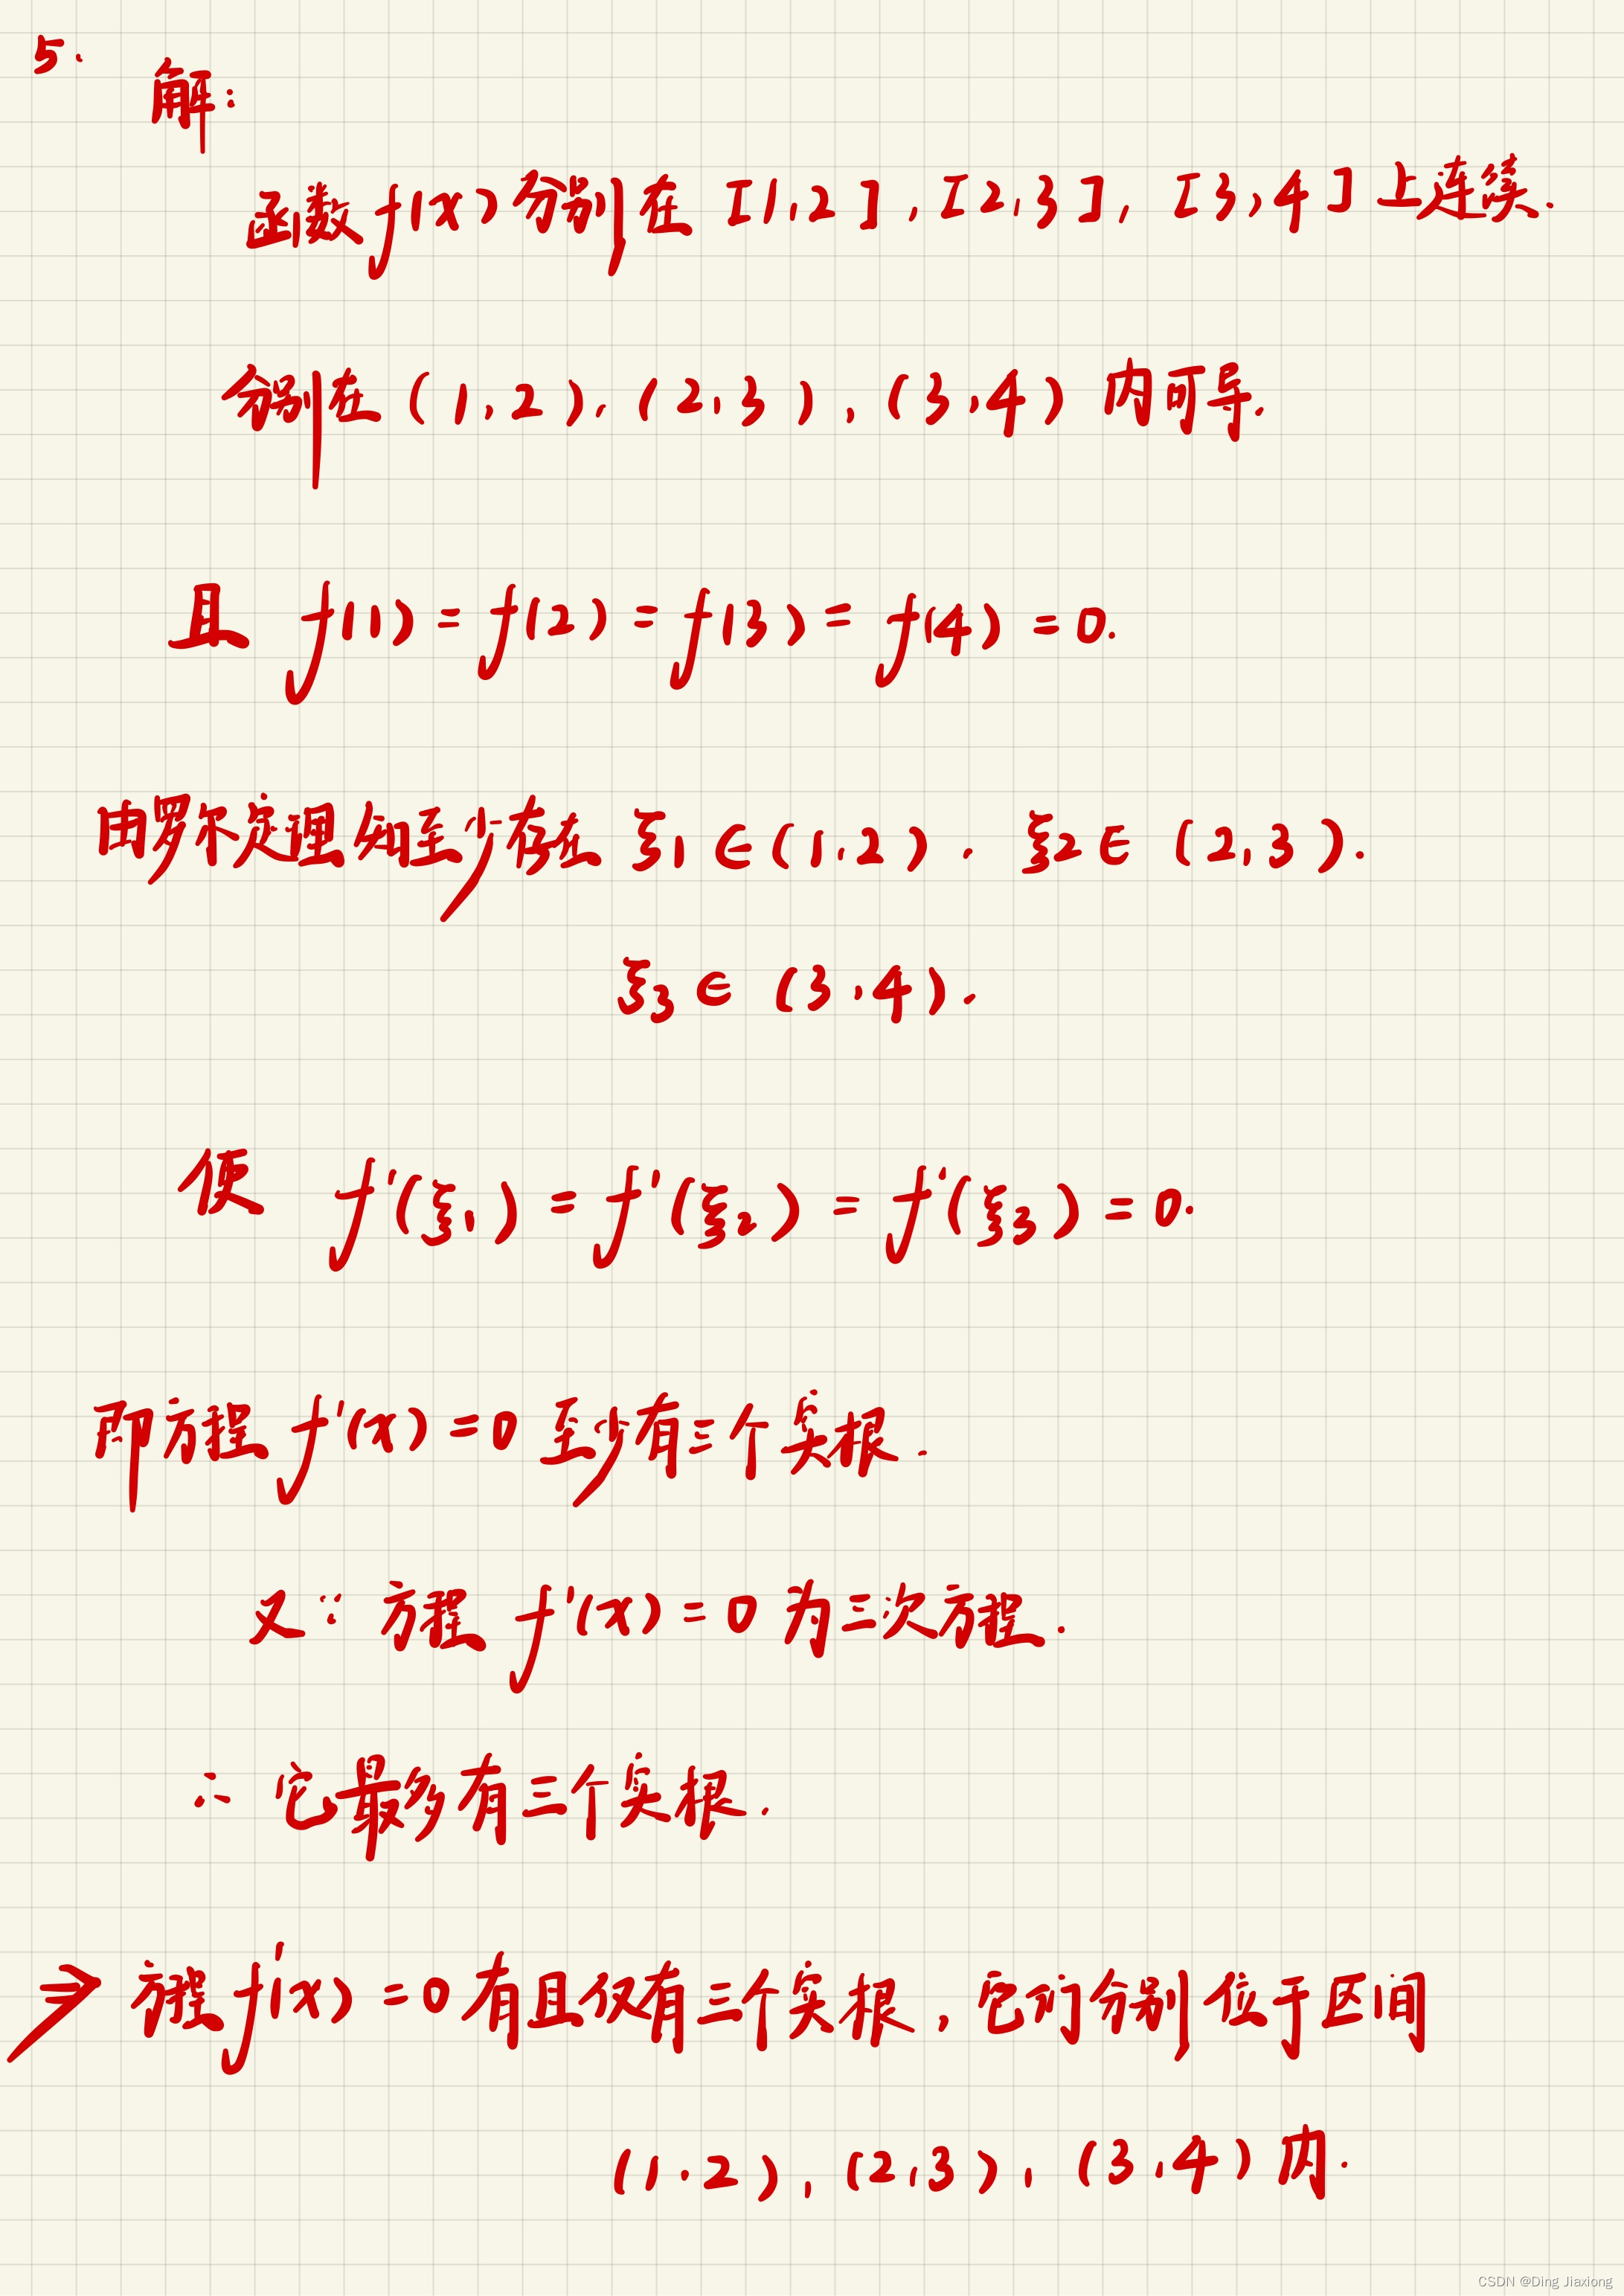 5.
解:
函数f(x)分别在[1,2],[2,3],[3,4]上连续.
分别在(1,2),(2,3),(3,4)内可导.
且 f(1)=f(2)=f(3)=f(4)=0.
由罗尔定理知至少存在 ξ1∈(1,2), ξ2∈(2,3).
ξ3∈(3,4).
使 f'(ξ1)=f'(ξ2)=f'(ξ3)=0.
即方程 f'(x)=0 至少有三个实根.
又∵ 方程 f'(x)=0 为三次方程.
∴ 它最多有三个实根.
⇒ 方程f'(x)=0有且仅有三个实根,它们分别位于区间
(1,2),(2,3),(3,4)内.
CSDN @Ding Jiaxiong